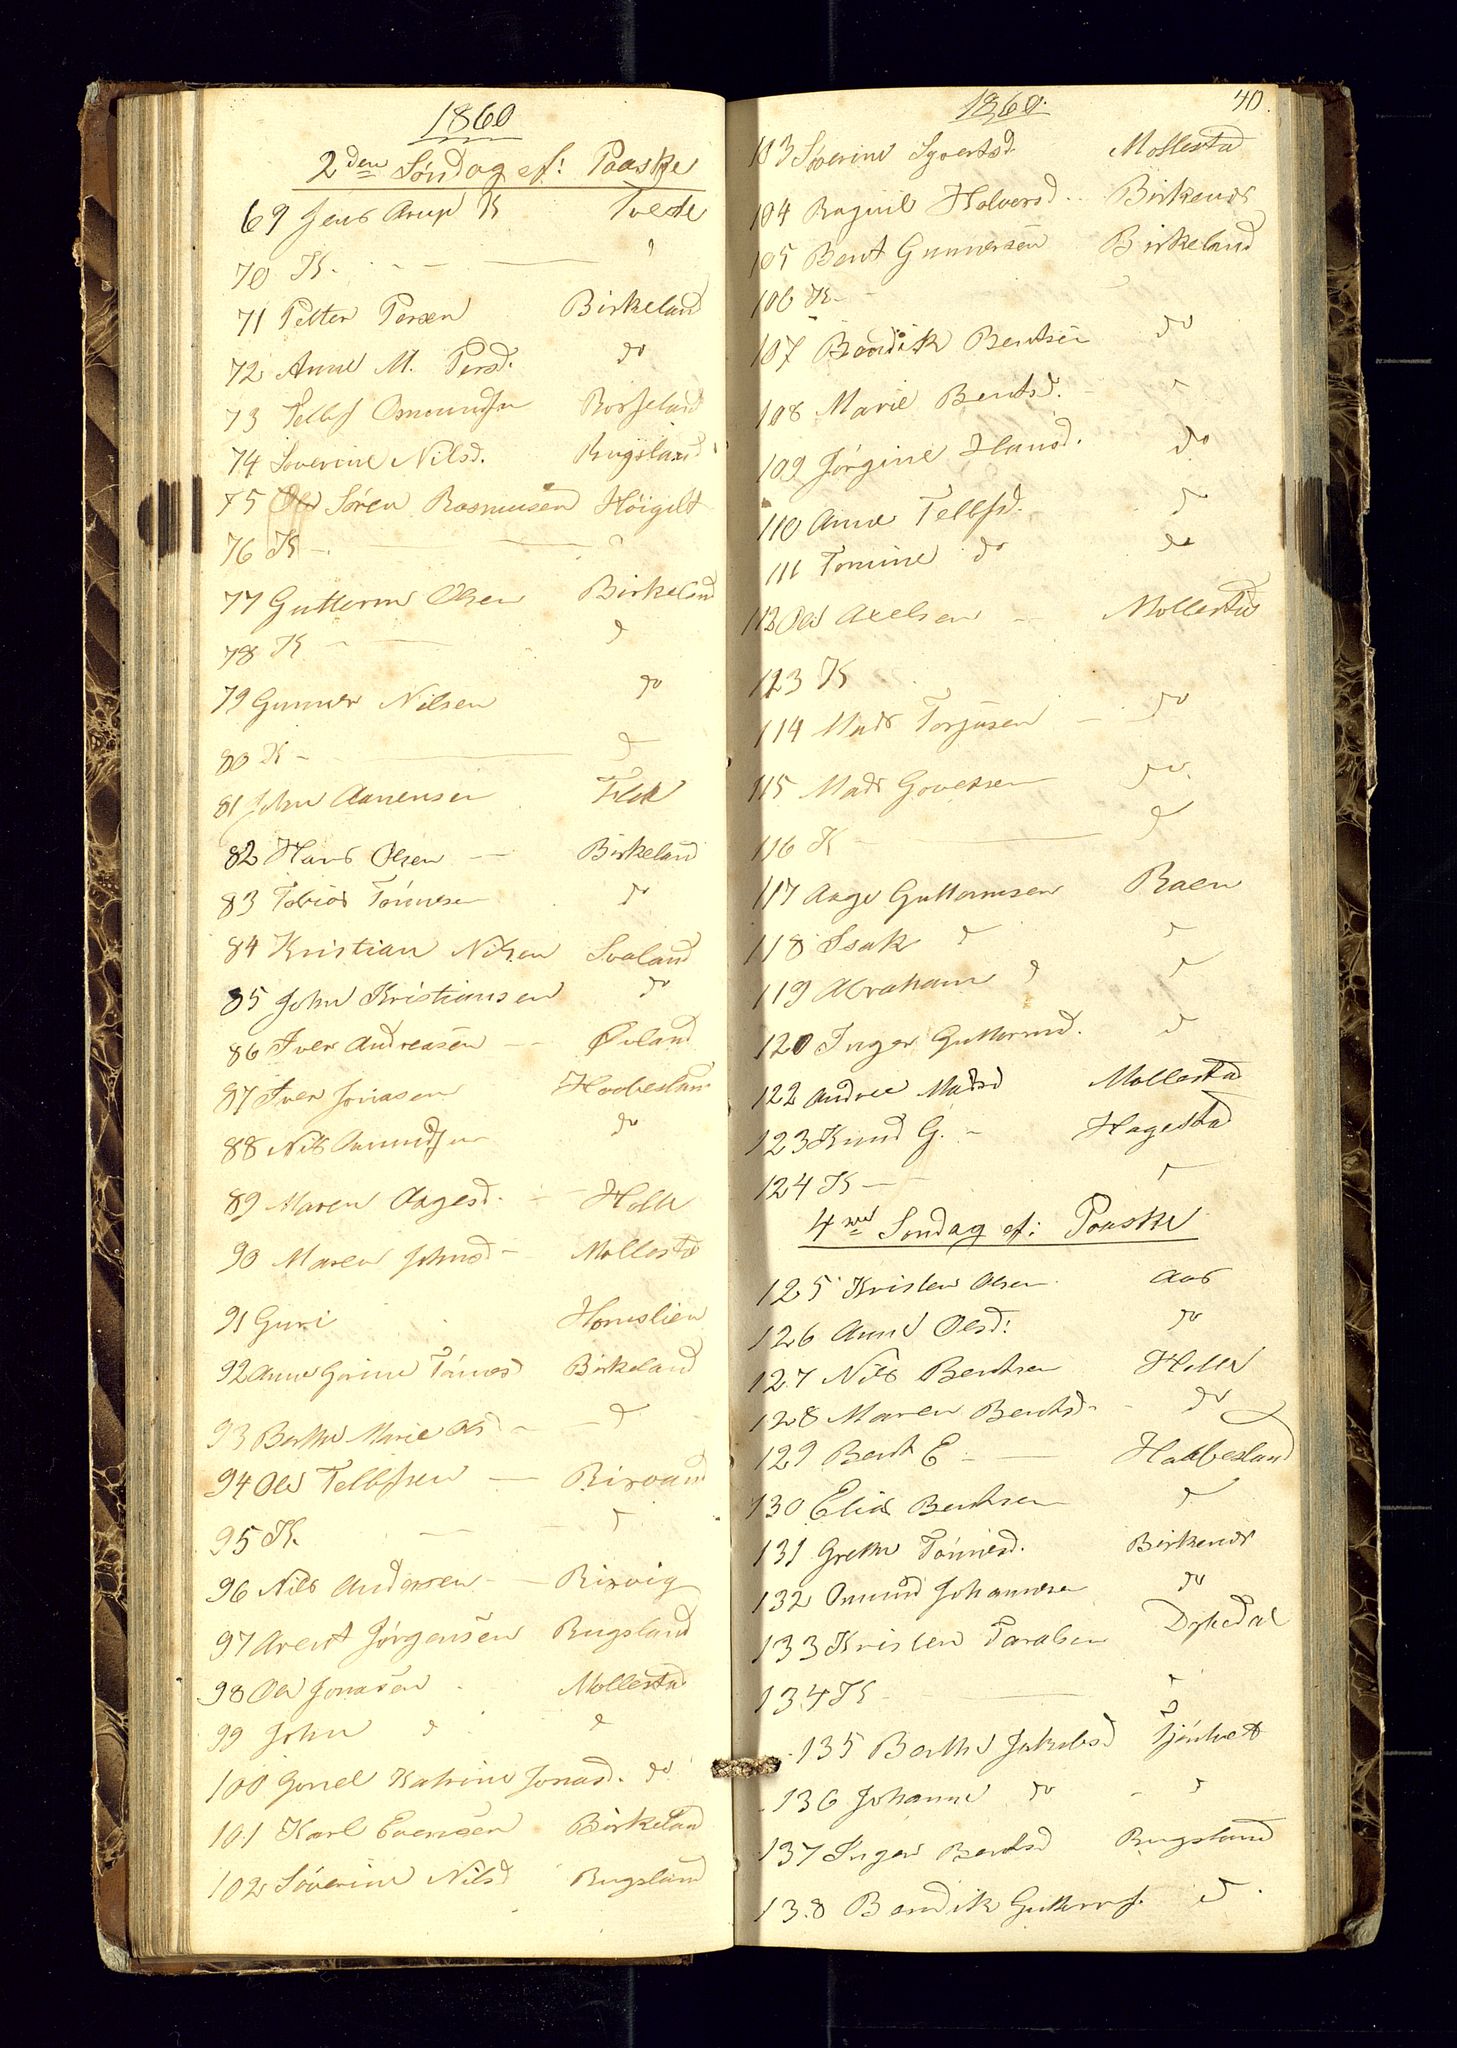 1860
2den Søndag ef: Paaske
69 Jens Arup K Tvede
70 K. - - "
71 Petter Persen Birkeland
72 Anne M. Persd. do
73 Tellef Omundsen Rosseland
74 Soverine Nilsd. Rugsland
75 Søren Rasmusen Høigilt
76 K - - "
77 Guttorm Olsen Birkeland
78 K - - d
79 Gunner Nilsen do
80 K - - d
81 John Aanensen Flak
82 Hans Olsen - Birkeland
83 Tobias Tønnesen do
84 Kristian Nilsen Svaland
85 John Kristiansen do
86 Iver Andreasen - Øvland
87 Iver Jonasen Hobbesland
88 Nils Aanundsen do
89 Maren Aagesd. - Holte
90 Maren Johnsd - Mollestad
91 Guri Homslien
92 Anne Gorine Tønnesd Birkeland
93 Berthe Marie Olsd - - d
94 Ole Tellefsen - Birvand
95 K. - - d
96 Nils Andersen - Risvig
97 Arent Jørgensen Rugsland
98 Ole Jonasen Mollestad
99 John d d
100 Gorvel Katrine Jonasd. do
101 Karl Evensen Birkeland
102 Søverine Nilsd Rugsland
1860. 40.
103 Søverine Syvertsd. Mollestad
104 Ragnil Halvorsd. Birkenes
105 Bent Gunnersen Birkeland
106 K - -
107 Bendik Bentsen do
108 Marie Bentsd. "
109 Jørgine Hansd. do
110 Anne Tellefsd. d
111 Tomine do do
112 Ole Axelsen - Mollestad
123 K
114 Mads Torjusen - do
115 Mads Govertsen do.
116 K - - d
117 Aage Guttormsen Raen
118 Isak d d
119 Abraham d d
120 Inger Guttormsd. d
122 Andrea Madsd Mollestad
123 Knud G. - Hagestad
124 K - - d
4de Søndag ef: Paaske
125 Kristen Olsen Aas
126 Anne Olsd: do
127 Nils Bentsen Holte
128 Maren Bentsd - do
129 Bent E - - Habbesland
130 Elias Bentsen d
131 Grethe Tønnesd. Birkenes
132 Omund Johannesen do
133 Kristen Taralsen Dykedal
134 K - - "
135 Berthe Jakobsd Tjønhvet
136 Johanne do - d
137 Inger Bentsd Rugsland
138 Bendik Guttormsn. d.